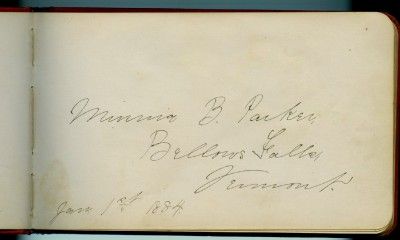 Minnia B. Parker,
Bellows Falls,
Vermont.
Jan 1st 1884